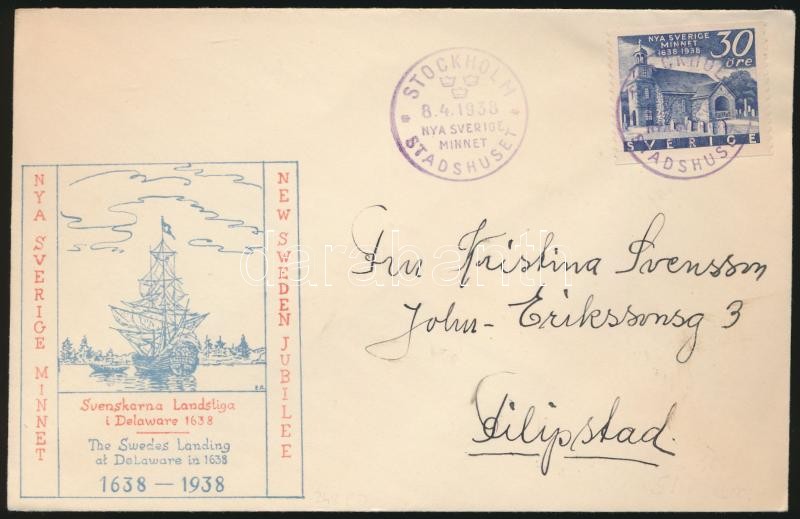 STOCKHOLM
8.4.1938
NYA SVERIGE
MINNET
STADSHUSET
NYA SVERIGE
MINNET
1638-1938
30
öre
SVERIGE
STADSHUSET
NYA SVERIGE MINNET
NEW SWEDEN JUBILEE
Svenskarna Landstiga
i Delaware 1638
The Swedes Landing
at DeLaware in 1638
1638 — 1938
Fru Kristina Svensson
John-Erikssonsg 3
Filipstad.
darabanth